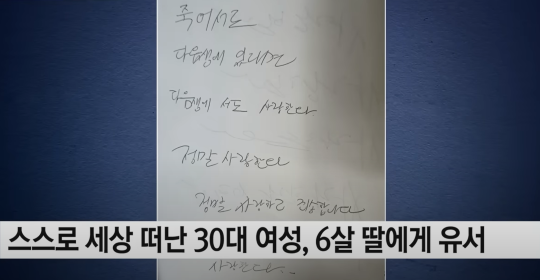 죽어서도
다음생에 있다면
다음생에서도 사랑한다
정말 사랑한다
정말 사랑하고 죄송합니다
스스로 세상 떠난 30대 여성, 6살 딸에게 유서
사랑한다..